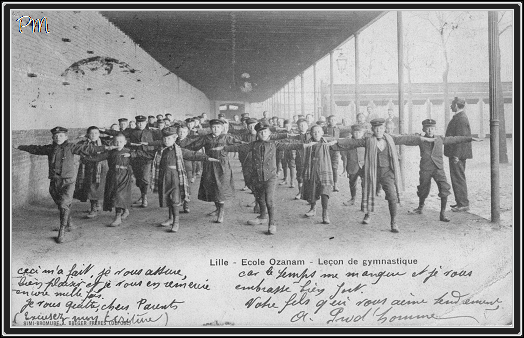 PM
Lille - Ecole Ozanam - Leçon de gymnastique
ceci m'a fait, je vous assure,
bien plaisir et je vous en remercie
encore mille fois.
Je vous quitte, chers Parents
(Excusez mon écriture)
car le temps me manque et je vous
embrasse bien fort.
Votre fils qui vous aime tendrement
A. Prud'homme
IMP. BROMURE A. BREGER FRÈRES